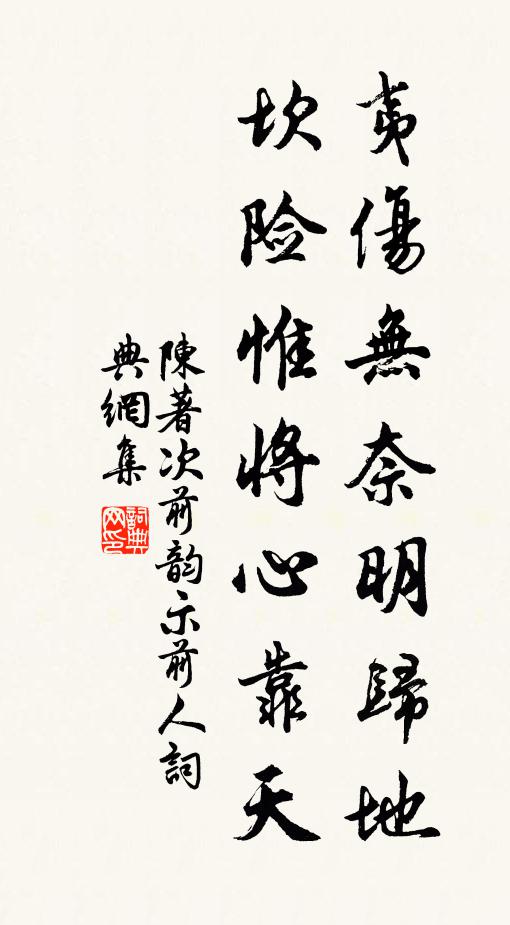 夷傷無奈明歸地
坎险惟將心靠天
陳著次前韵示前人詞
典網集
詞典
网印